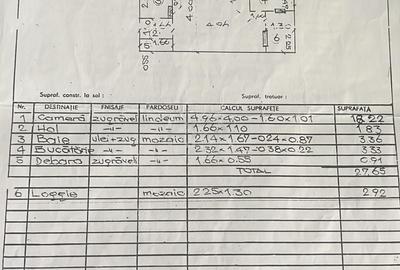 4.94
1.66
5
6
Supraf. constr. la sol :
Supraf. trotuar :
Nr. DESTINAȚIE FINISAJ PARDOSELI CALCUL SUPRAFEȚE SUPRAFAȚĂ
1 Cameră zugrăveli linoleum 4.96×4.00-1.60×1.01 18.22
2 Hol -"- -"- 1.66×1.10 1.83
3 Baie ulei+zug mozaic 2.14×1.67-0.24×0.87 3.36
4 Bucătărie -"- -"- 2.32×1.47-0.38×0.22 3.33
5 Debara zugrăveli -"- 1.66×0.55 0.91
TOTAL 27.65
6 Loggie mozaic 2.25×1.30 2.92